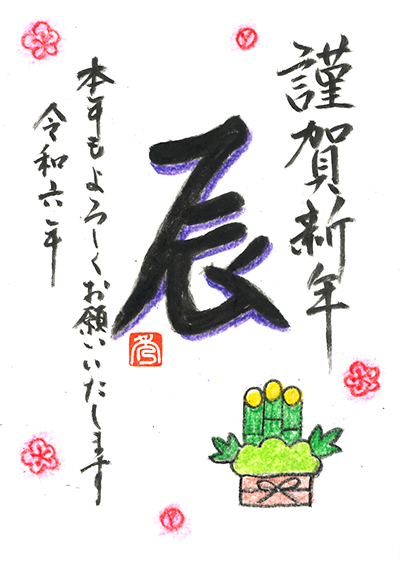 謹賀新年
辰
本年もよろしくお願いいたします
令和六年